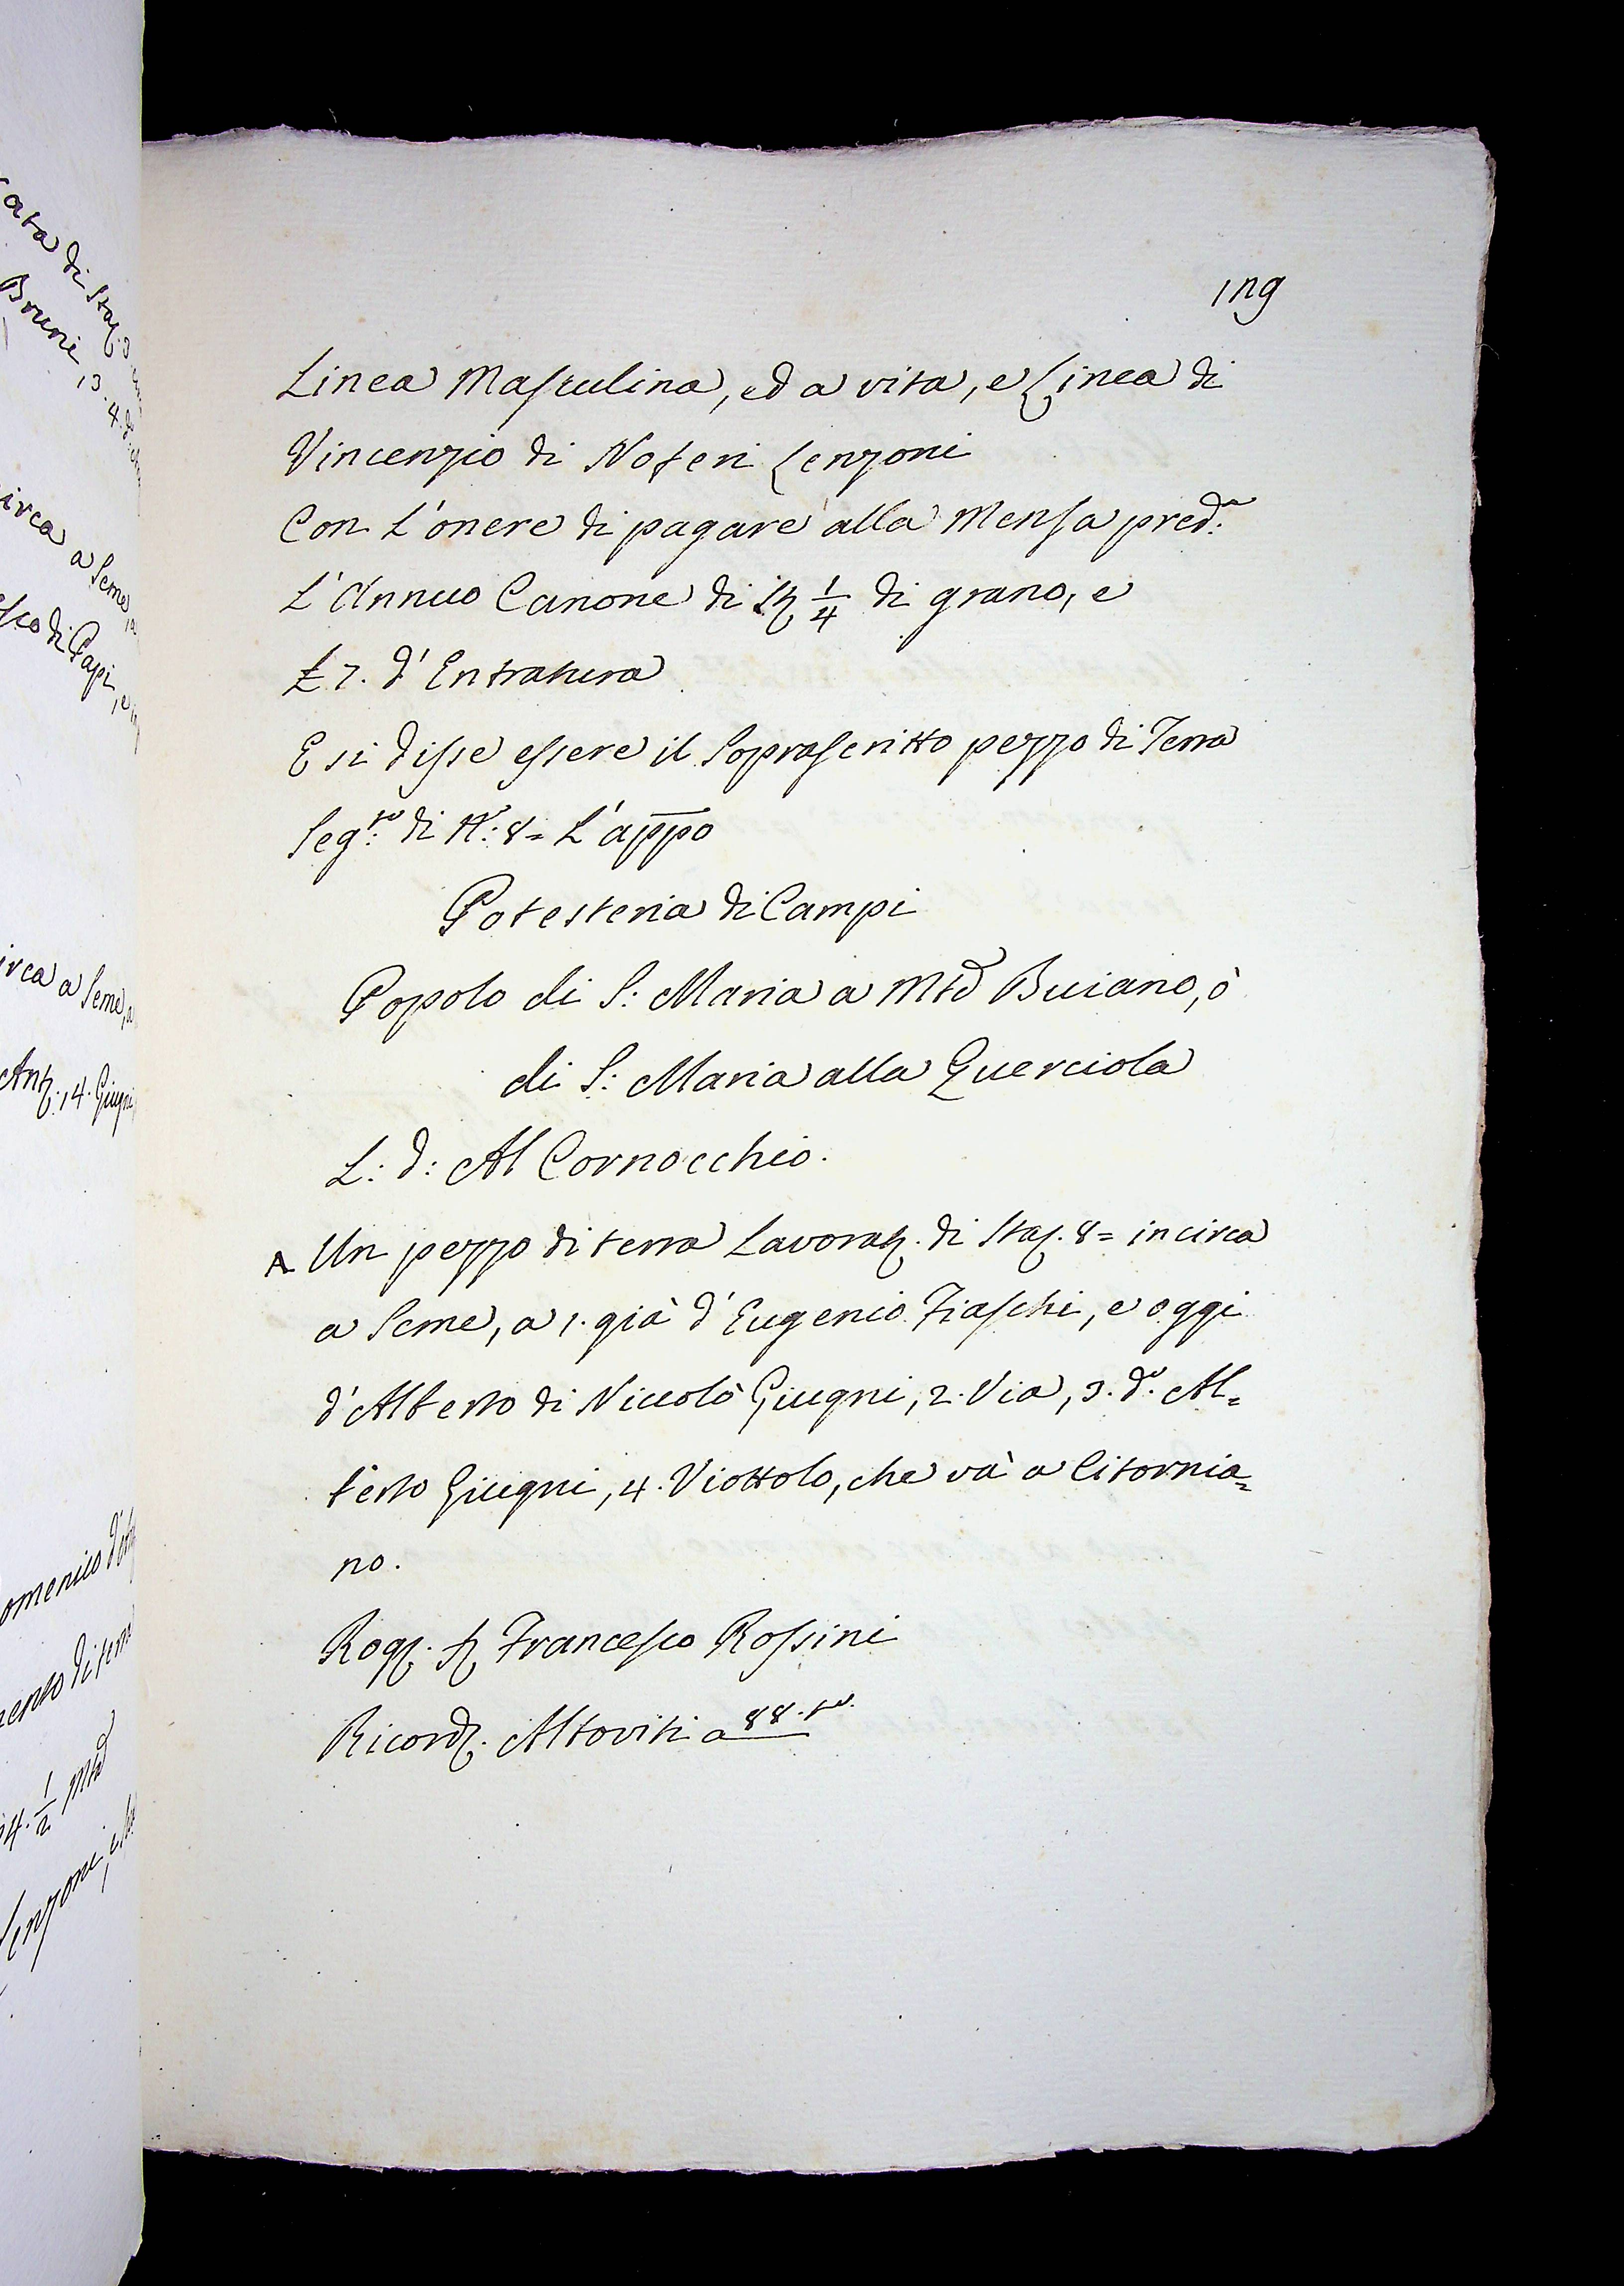 129
Linea Masculina, ed a vita, e Linea di
Vincenzio di Noferi Lenzoni
Con L'onere di pagare alla Mensa pred.ª
L'Annuo Canone di St. 1/4 di grano, e
£ 7. d'Entratura
E si disse essere il Soprascritto pezzo di Terra
Seg.to di N.º: 8= L'appo
Potesteria di Campi
Popolo di S: Maria a Mtē Buiano, ò
di S: Maria alla Querciola
L: d: Al Cornocchio.
A Un pezzo di terra Lavorat. di Sta. 8= in circa
a Seme, a 1. già d'Eugenio Fiaschi, e oggi
d'Alberto di Niccolò Giugni, 2. Via, 3. d.º Al=
berto Giugni, 4. Viottolo, che và a Citornia=
no.
Rog. Francesco Rossini
Ricord. Altoviti a 88. to.
ata di Sta.
Bruni, 3. 4. d.
irca a Seme,
sco di Papi, e
irca a Seme, a
Ant. 4. Giugni
omenico d'
ento di terr
4. 1/2 Mtē
Lenzoni, e